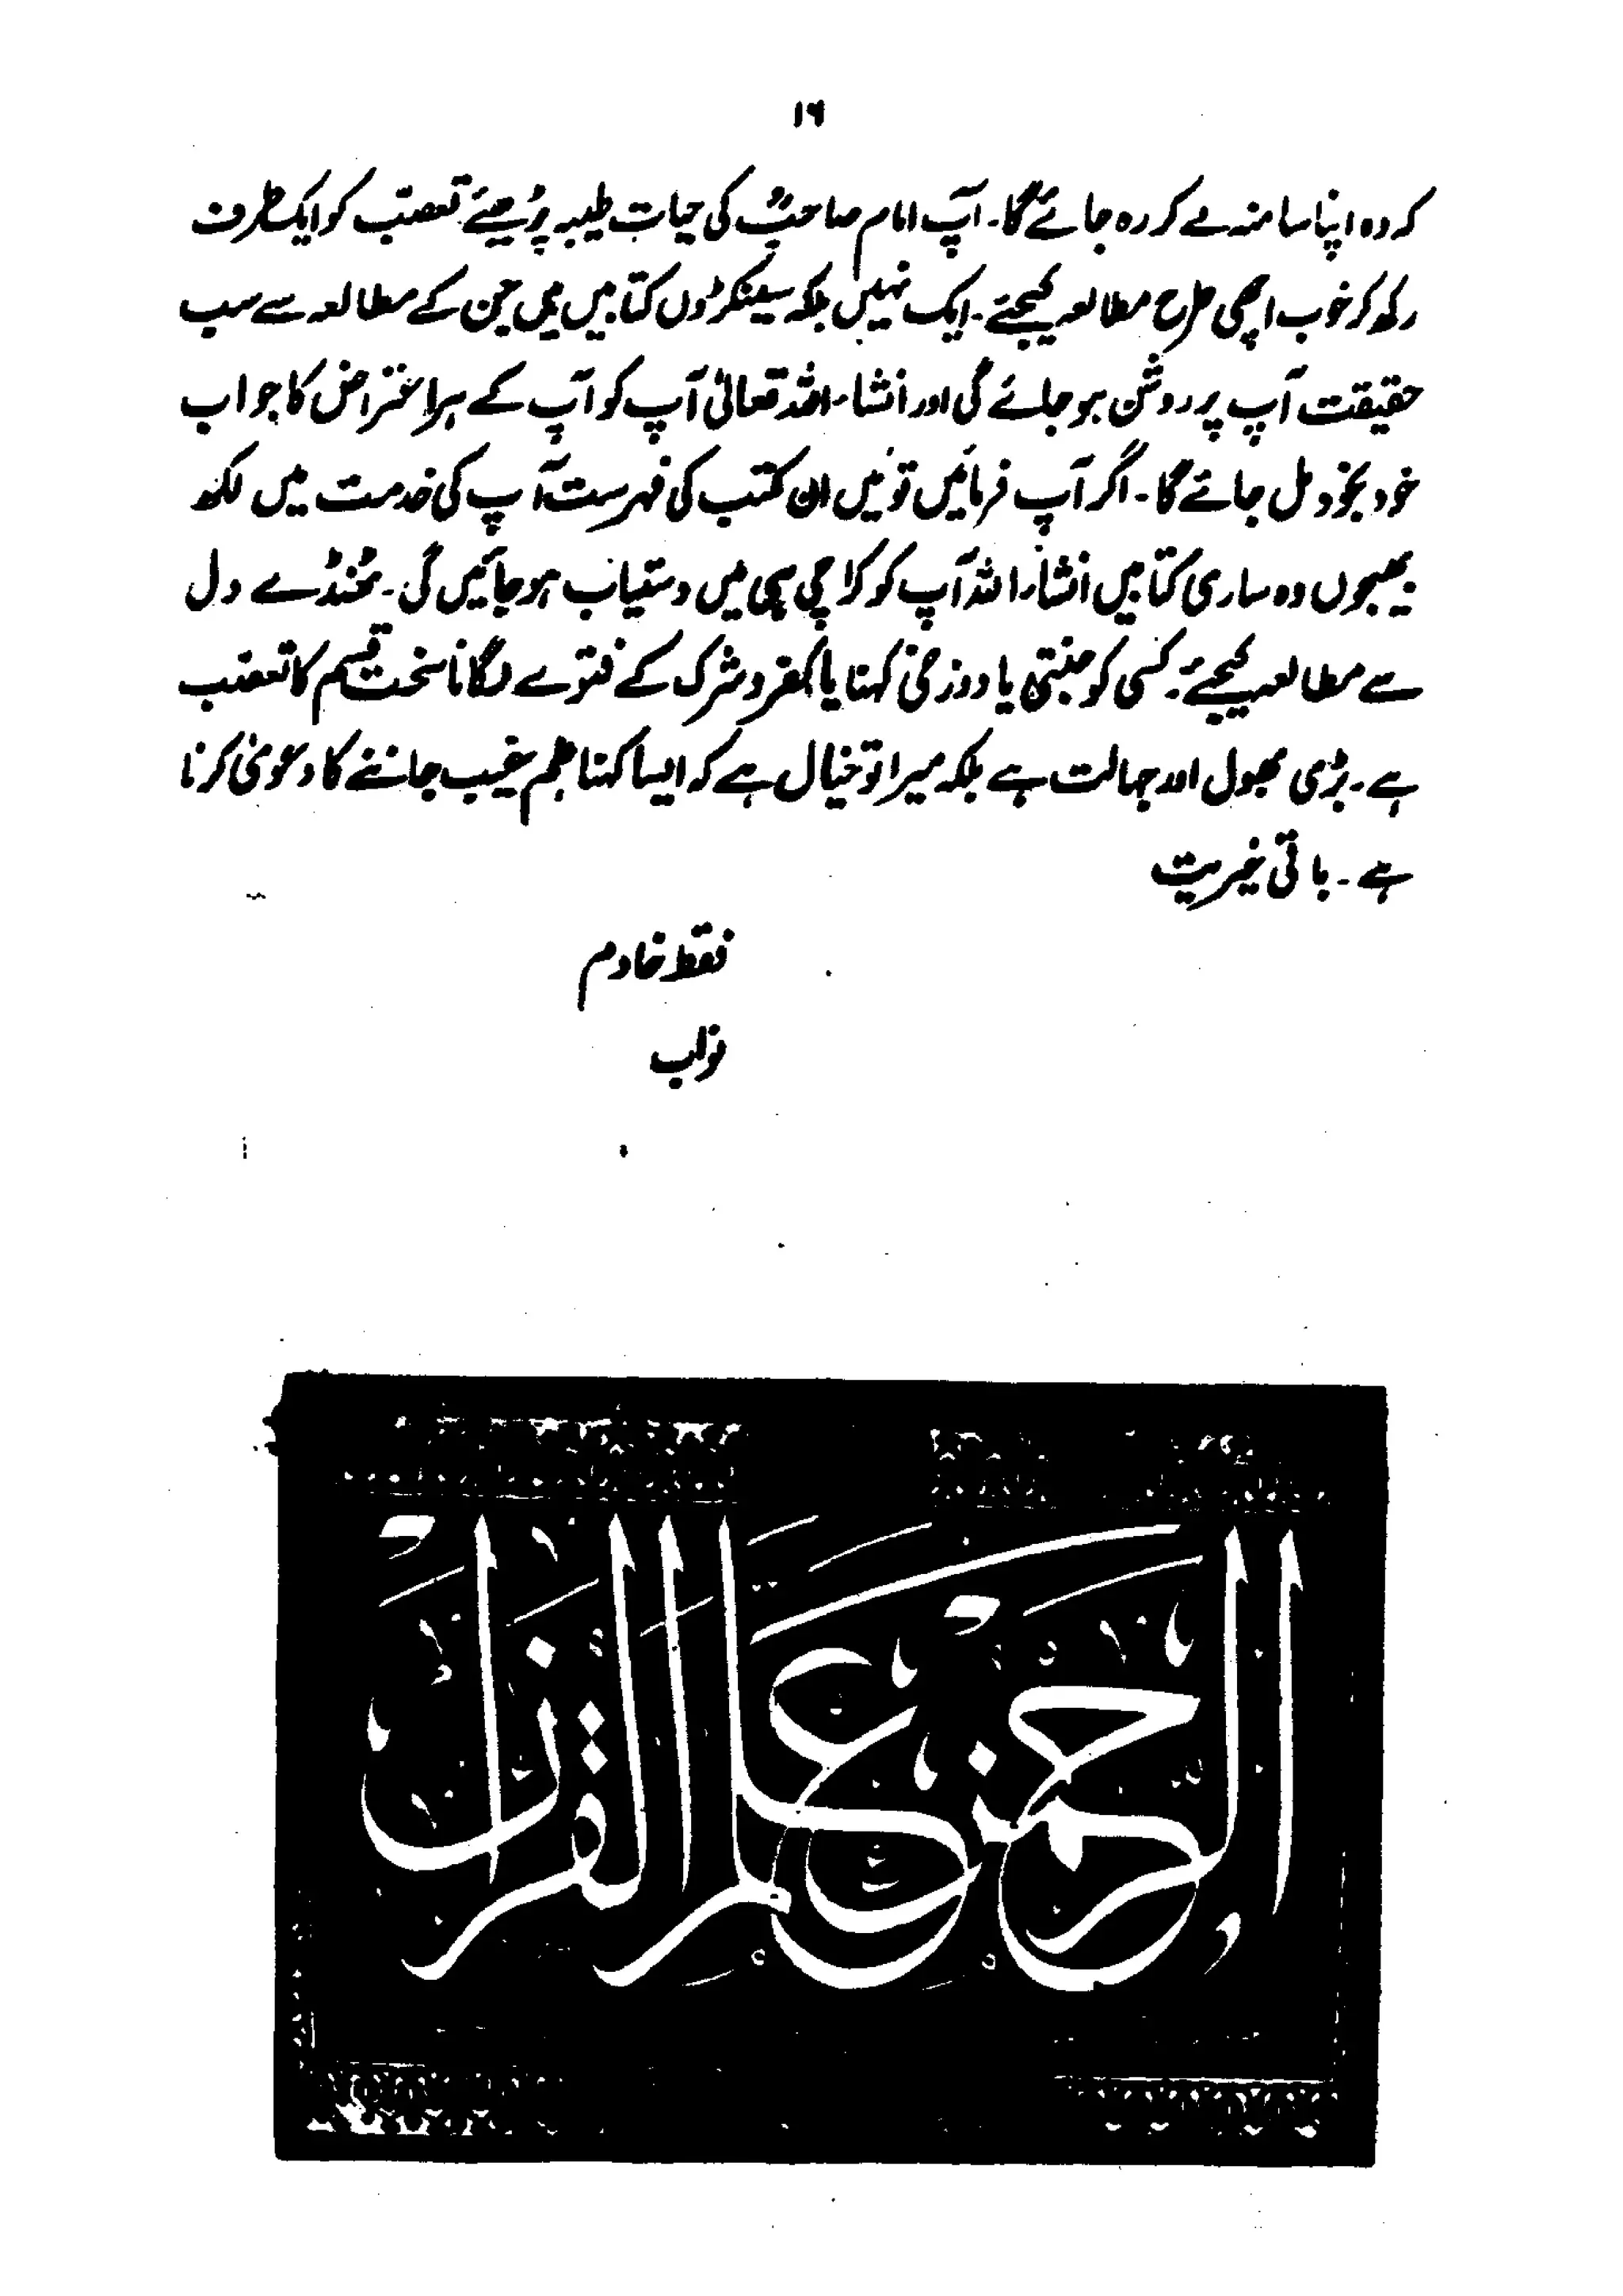 ۱۶
کہ وہ اپنا سا منہ لے کر رہ جائے گا۔ آپ امام صاحبؒ کی حیات طیبہ پڑھیئے تعصب کو ایک طرف
رکھ کر خوب اچھی طرح مطالعہ کیجئے۔ ایک نہیں بلکہ سینکڑوں کتابیں ہیں جن کے مطالعہ سے سب
حقیقت آپ پر روشن ہو جائے گی اور انشاء اللہ تعالیٰ آپ کو آپ کے ہر اعتراض کا جواب
خود بخود مل جائے گا۔ اگر آپ فرمائیں تو میں ان کتب کی فہرست آپ کی خدمت میں لکھ
بھیجوں وہ ساری کتابیں انشاء اللہ آپ کو کراچی ہی میں دستیاب ہو جائیں گی۔ ٹھنڈے دل
سے مطالعہ کیجئے۔ کسی کو جنتی یا دوزخی کہنا یا کفر و شرک کے فتوے لگانا سخت قسم کا تعصب
ہے۔ بڑی بھول اور جہالت ہے بلکہ میرا تو خیال ہے کہ ایسا کہنا علم غیب جاننے کا دعویٰ کرنا
ہے۔ باقی خیریت
فقط خادم
نواب
الرحمن علم القرآن